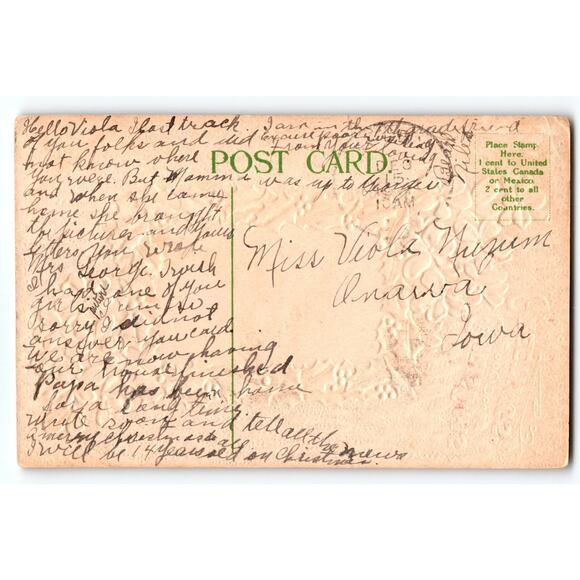 Hello Viola I lost track
of you folks and did
not know where
you were. But Mamma was up to George
and when she came
home she brought
the pictures and yours
letters you wrote
Mrs George. I wish
I had one of you
girls. I am so
sorry I did not
answer you card
We are now having
our house finished
Papa has been home
for a long time.
write soon and tell all the news
a merry Christmas to all
I will be 14 years old on Christmas.
I am in the grade
excuse poor writing
From your friend
POST CARD.
10 AM
Place Stamp
Here.
1 cent to United
States Canada
or Mexico.
2 cent to all
other
Countries.
Miss Viola Nuzum
Onawa
Iowa